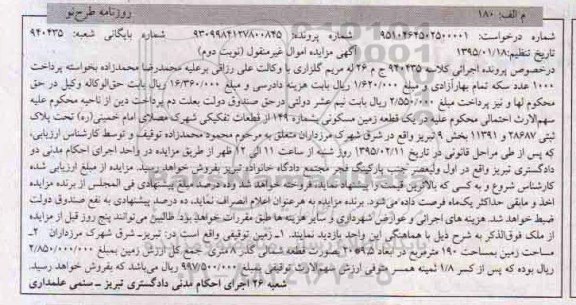 م الف: ۱۸۰
روزنامه طرح نو
شماره درخواست: ۹۵۱۰۴۶۴۵۰۲۵۰۰۰۰۱ شماره پرونده: ۹۳۰۹۹۸۴۱۲۷۸۰۰۸۴۵ شماره بایگانی شعبه: ۹۴۰۴۳۵
تاریخ تنظیم: ۱۳۹۵/۰۱/۱۸ آگهی مزایده اموال غیرمنقول (نوبت دوم)
درخصوص پرونده اجرائی کلاسه ۹۴۰۴۳۵ ج م ۲۶ له مریم گلزاری با وکالت علی رزاقی برعلیه محمدرضا محمدزاده بخواسته پرداخت
۱۰۰۰ عدد سکه تمام بهارآزادی و مبلغ ۱/۶۲۰/۰۰۰ ریال بابت هزینه دادرسی و مبلغ ۱۶/۳۶۰/۰۰۰ ریال بابت حق الوکاله وکیل در حق
محکوم لها و نیز پرداخت مبلغ ۲/۵۵۰/۰۰۰ ریال بابت نیم عشر دولتی درحق صندوق دولت بعلت دم پرداخت دین از ناحیه محکوم علیه
سهم الارث احتمالی محکوم علیه در یک قطعه زمین مسکونی بشماره ۱۴۹ از قطعات تفکیکی شهرک مصلای امام خمینی(ره) تحت پلاک
ثبتی ۲۸۶۸۷ و ۱۱۳۹۱ بخش ۹ تبریز واقع در شرق شهرک مرزداران متعلق به مرحوم محمود محمدزاده توقیف و توسط کارشناس ارزیابی،
که پس از طی مراحل قانونی در تاریخ ۱۳۹۵/۰۲/۱۱ روز شنبه از ساعت ۱۱ الی ۱۲ ظهر از طریق مزایده در واحد اجرای احکام مدنی دو
دادگستری تبریز واقع در اول ولیعصر جنب پارکینگ لاجر مجتمع دادگاه خانواده تبریز بفروش خواهد رسید. مزایده از مبلغ ارزیابی شده
کارشناس شروع و به کسی که بالاترین قیمت را پیشنهاد نماید فروخته خواهد شد و ده درصد مبلغ پیشنهادی فی المجلس از برنده مزایده
اخذ و مابقی حداکثر یک ماه فرصت داده می شود. برنده مزایده به هرعنوان اعلام انصراف نماید، ده درصد پیشنهادی به نفع صندوق دولت
ضبط خواهد شد. هزینه های اجرائی و عوارض شهرداری و سایر هزینه ها طبق مقررات خواهد بود. طالبین می توانند پنج روز قبل از مزایده
از ملک فوق الذکر به شرح ذیل با هماهنگی این واحد بازدید نمایند. ۱ـ زمین توقیفی واقع است در: تبریزـ شرق شهرک مرزداران ۲ـ
مساحت زمین بمساحت ۱۹۰ مترمربع در ابعاد بصورت قطعه شمالی گذر ۸ متری جمع کل ارزش زمین بمبلغ ۲/۸۵۰/۰۰۰/۰۰۰
ریال بوده که پس از کسر ۱/۸ ثمینه همسر متوفی ارزش سهم الارث توقیفی مبلغ ۹۹۷/۵۰۰/۰۰۰ ریال می باشد که بفروش خواهد رسید.
شعبه ۲۶ اجرای احکام مدنی دادگستری تبریز ـ صنمی علمداری